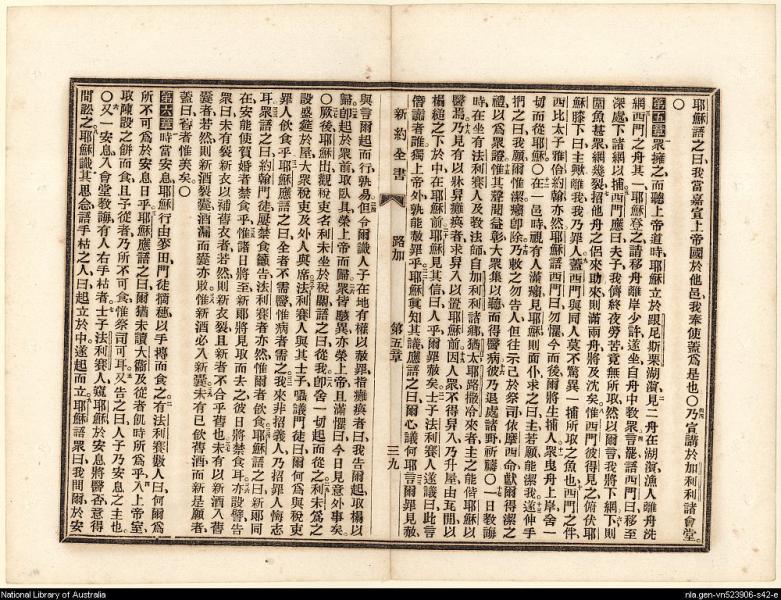 耶穌語之曰我當嘉宣上帝國於他邑我奉使蓋爲是也○乃宣講於加利利諸會堂
○
第五章衆擁之而聽上帝道時耶穌立於㞋尼斯栗湖濵見二舟在湖濵漁人離舟洗
網西門之舟其一耶穌登之請移舟離岸少許遂坐自舟中敎衆言罷語西門曰移至
深處下諸網以捕西門應曰夫子我儕終夜勞苦竟無所取然以爾言我將下網下則
圍魚甚衆網幾裂招他舟之侶來助來則滿兩舟將及沈矣惟西門彼得見之俯伏耶
穌膝下曰主歟離我我乃罪人蓋西門與同人莫不驚異一捕所取之魚也西門之伴
西比太子雅伯約翰亦然耶穌語西門曰勿懼今而後爾將生捕人衆曳舟上岸舍一
切而從耶穌○在一邑時觀有人滿瘍見耶穌則面仆求之曰主若願能潔我遂伸手
捫之曰我願爾惟潔瘍卽除乃敕之勿告人但往示己於祭司依摩西命獻爾得潔之
禮以爲衆證惟其聲聞益彰大衆集以聽而得醫病彼乃退處諸野祈禱○一日敎誨
時在坐有法利賽人及敎法師自加利利諸鄉猶太耶路撒冷來者主之能偕耶穌以
醫焉乃見有以牀舁癱瘓者求舁入以置耶穌前因人衆不得舁入乃升屋由瓦間以
榻縋之下於中在耶穌前耶穌見其信曰人乎爾罪赦矣士子法利賽人遂議曰此言
僭謗者誰獨上帝外孰能赦罪乎耶穌眞知其議應語之曰爾心議何耶言爾罪見赦
新約全書
路加
第五章
三九
與言爾起而行孰易但令爾識人子在地有權以赦罪指癱瘓者曰我告爾起取榻以
歸卽起於衆前取臥具榮上帝而歸衆皆駭異亦榮上帝且滿懼曰今日見意外事矣
○厥後耶穌出觀稅吏名利未坐於稅關語之曰從我卽舍一切起而從之利未爲之
設盛筵於屋大衆稅吏及外人與席法利賽人與其士子囁議門徒曰爾何爲與稅吏
罪人飲食乎耶穌應語之曰全者不需醫惟病者需之我來非招義人乃招罪人悔志
耳衆語之曰約翰門徒屢禁食籲告法利賽者亦然惟爾者飲食耶穌語之曰新郎同
在安能使賀婚者禁食乎惟諸日將至新郎將見取而去之彼日將禁食耳亦設譬告
衆曰未有裂新衣以補舊衣者若然則新衣裂且新者不合乎舊也未有以新酒入舊
囊者若然則新酒裂囊酒漏而囊亦敗惟新酒必入新囊未有已飲舊酒而新是願者
蓋曰舊者惟美矣○
第六章時當安息耶穌行由麥田門徒擷穗以手撏而食之有法利賽數人曰何爾爲
所不可爲於安息日乎耶穌應語之曰爾猶未讀大衞及從者飢時所爲乎入上帝室
取陳設之餅而食且予從者乃所不可食惟祭司可耳又告之曰人子乃安息之主也
○又一安息入會堂敎誨有人右手枯者士子法利賽人窺耶穌於安息將醫否意得
間訟之耶穌識其思念語手枯之人曰起立於中遂起而立耶穌語衆曰我問爾於安
National Library of Australia
nla.gen-vn523906-s42-e